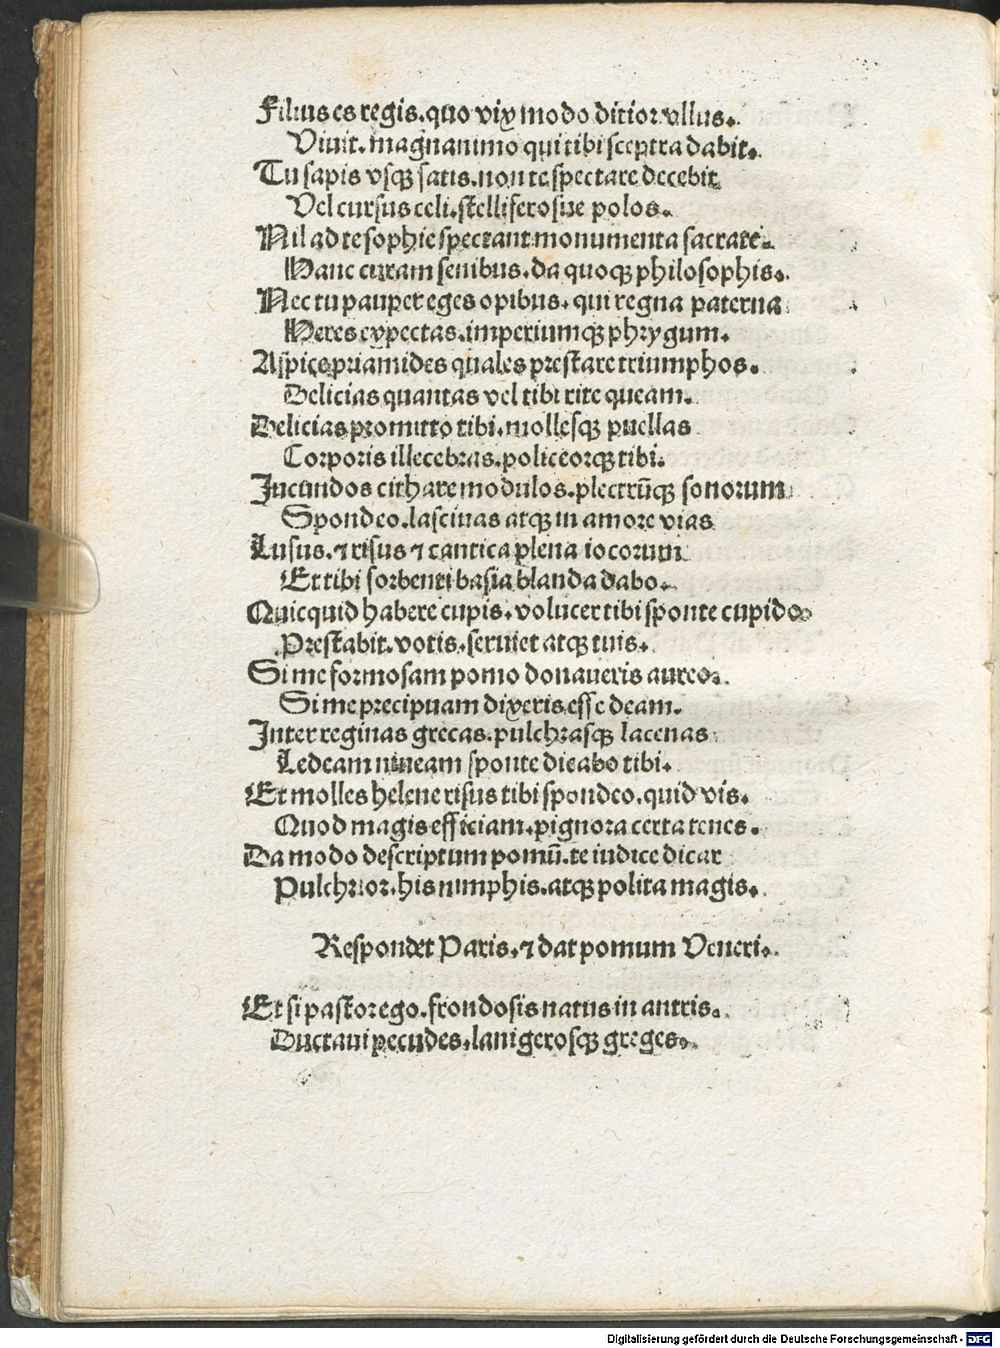 Filius es regis. quo vix modo ditior vllus.
Viuit. magnanimo qui tibi sceptra dabit.
Tu sapis vsqꝫ satis. non te spectare decebit
Vel cursus celi. stelliferosue polos.
Nil ad te sophie spectant monumenta sacrate.
Hanc curam senibus. da quoqꝫ philosophis.
Nec tu pauper eges opibus. qui regna paterna
Heres expectas. imperiumqꝫ phrygum.
Aspice priamides quales prestare triumphos.
Delicias quantas vel tibi rite queam.
Delicias promitto tibi. mollesqꝫ puellas
Corporis illecebras. policeorqꝫ tibi.
Jucundos cithare modulos. plectrūqꝫ sonorum
Spondeo. lasciuas atqꝫ in amore vias
Lusus. ⁊ risus ⁊ cantica plena iocorum
Et tibi sorbenti basia blanda dabo.
Quicquid habere cupis. volucer tibi sponte cupido
Prestabit. votis. seruiet atqꝫ tuis.
Si me formosam pomo donaueris aureo.
Si me precipuam dixeris esse deam.
Inter reginas grecas. pulchrasqꝫ lacenas
Ledeam niueam sponte dicabo tibi.
Et molles helene risus tibi spondeo. quid vis.
Quod magis efficiam. pignora certa tenes.
Da modo descriptum pomū. te iudice dicar
Pulchrior. his nimphis. atqꝫ polita magis.
Respondet Paris. ⁊ dat pomum Veneri.
Et si pastor ego. frondosis natus in antris.
Ductaui pecudes. lanigerosqꝫ greges.
Digitalisierung gefördert durch die Deutsche Forschungsgemeinschaft - DFG